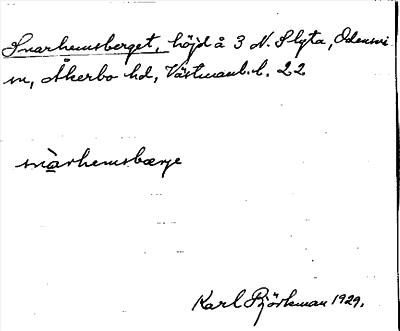 Snarhemsberget, höjd å 3 N. Slyta, Odensvi
sn, Åkerbo hd, Västmanl. l. 22
snàrhemsbærje
Karl Björkman 1929.